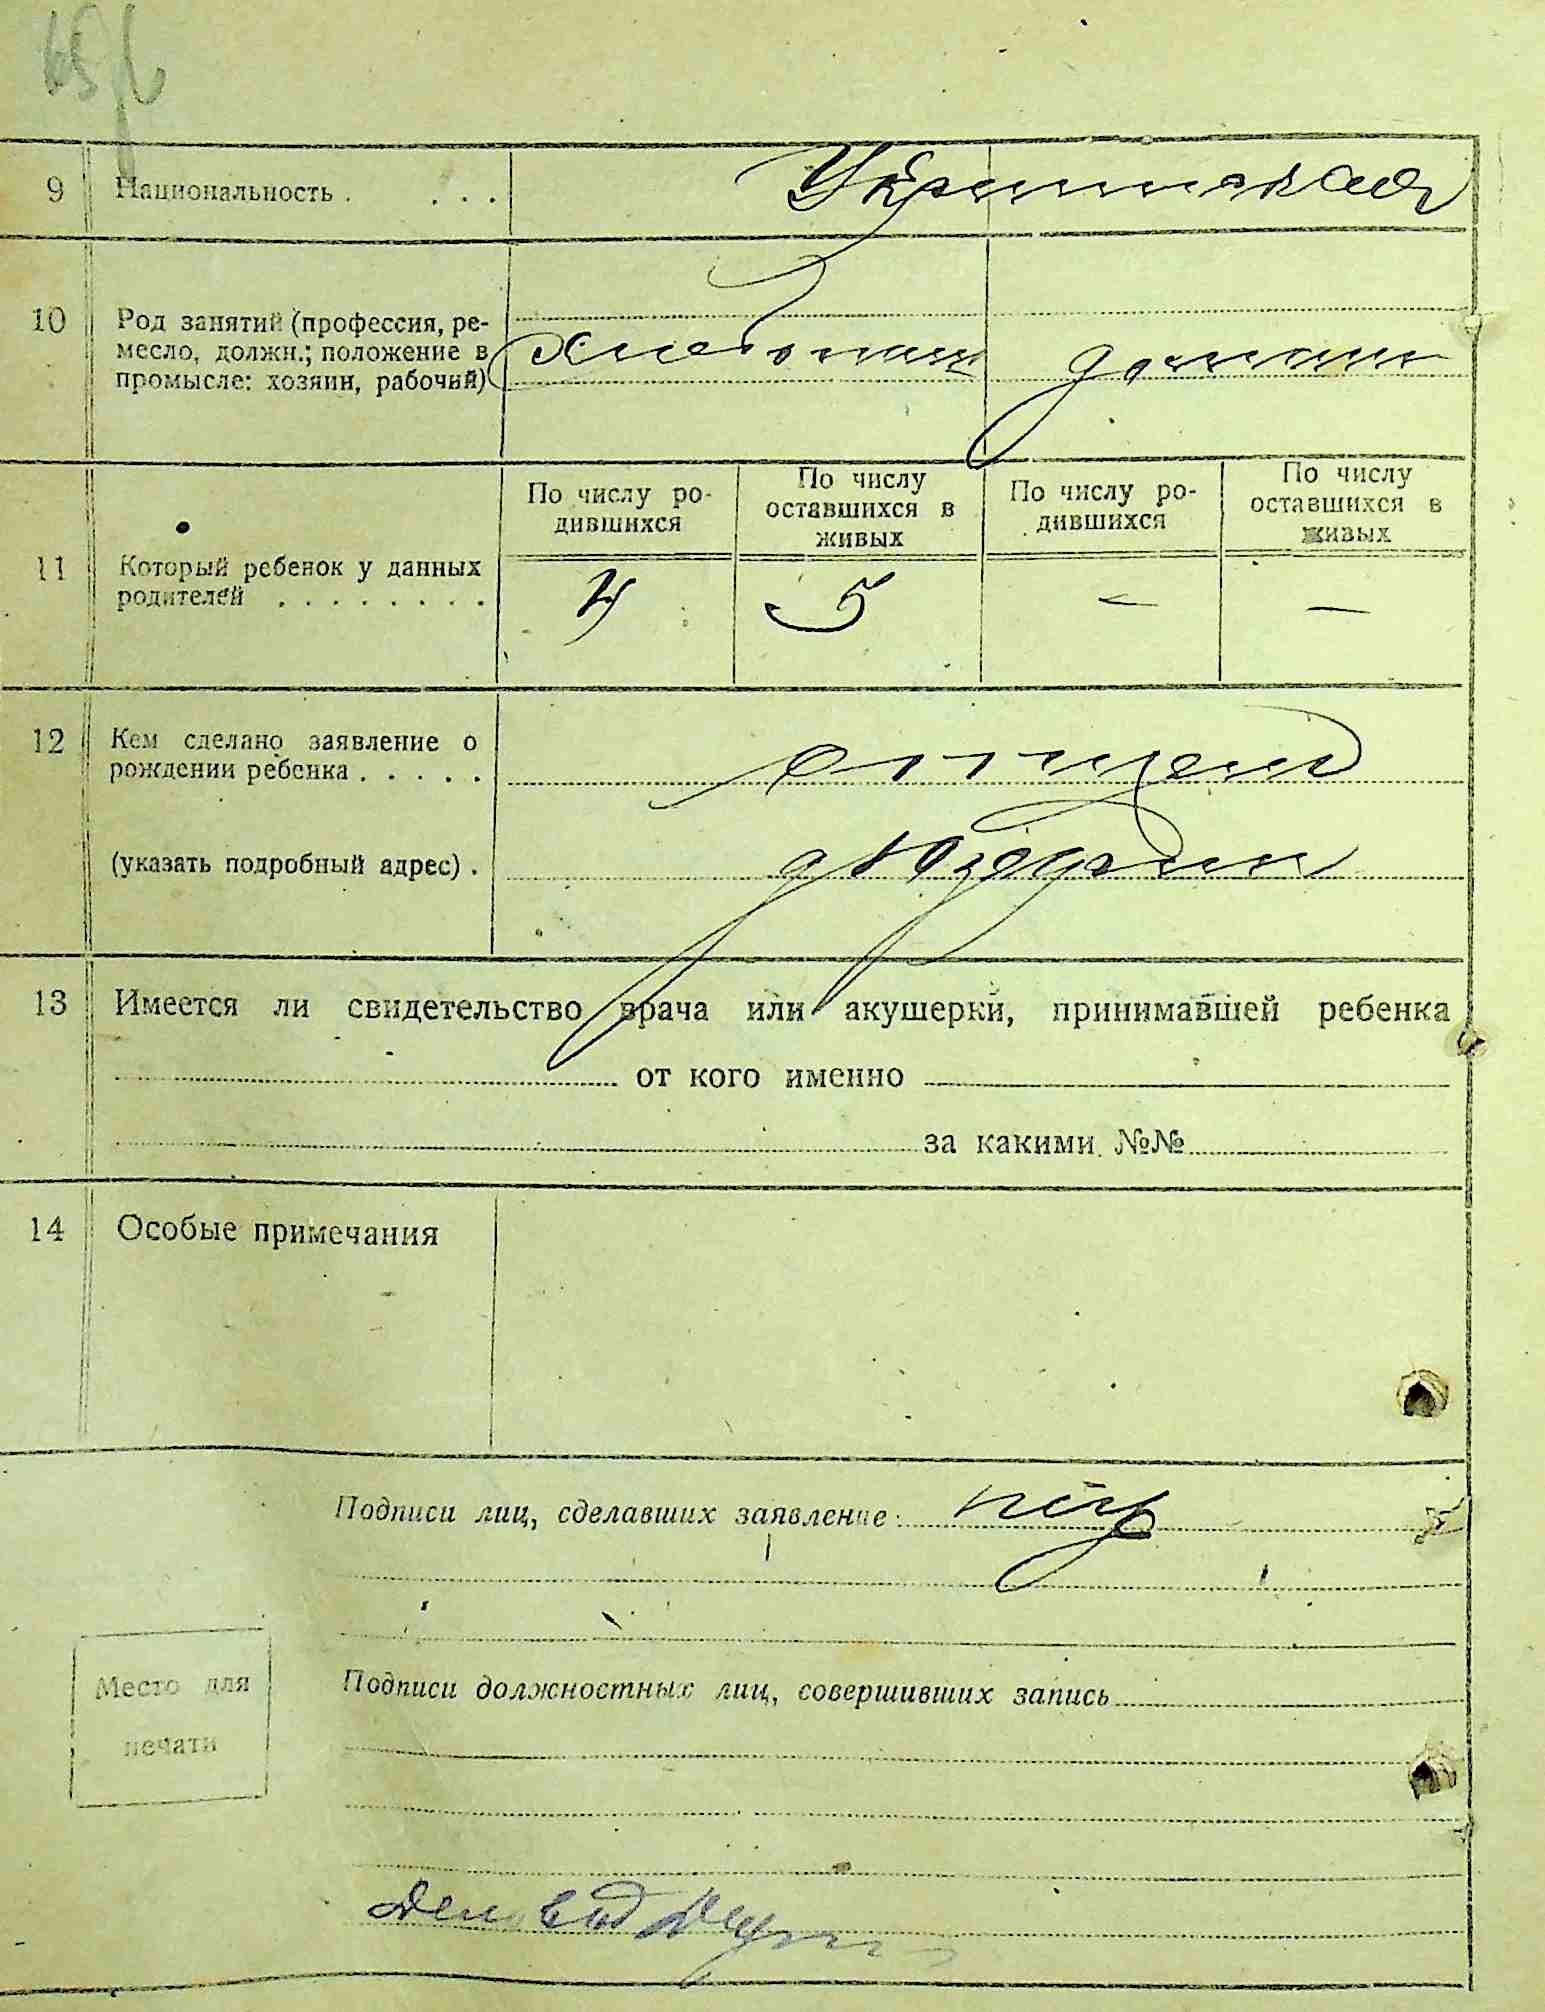 9 Национальность . . . . Украинская
10 Род занятий (профессия, ре-
месло, должн.; положение в
промысле: хозяин, рабочий)
По числу ро-
дившихся
По числу
оставшихся в
живых
По числу ро-
дившихся
По числу
оставшихся в
живых
11 Который ребенок у данных
родителей . . . . . . . .
5 – –
12 Кем сделано заявление о
рождении ребенка . . . . . отцем
(указать подробный адрес) .
13 Имеется ли свидетельство врача или акушерки, принимавшей ребенка
от кого именно
за какими №№
14 Особые примечания
Подписи лиц, сделавших заявление
Место для
печати
Подписи должностных лиц, совершивших запись